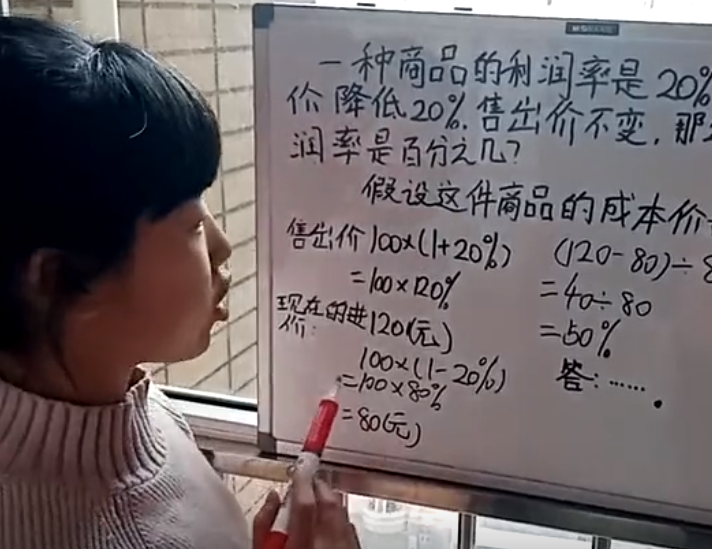 一种商品的利润率是20%
价降低20%.售出价不变,那
润率是百分之几?
假设这件商品的成本价
售出价100×(1+20%)
=100×120%
120(元)
现在的进
价:
100×(1-20%)
=100×80%
=80(元)
(120-80)÷8
=40÷80
=50%
答:……